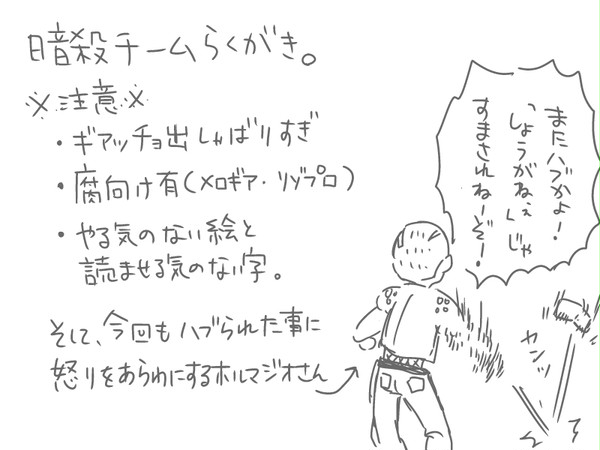 暗殺チームらくがき。
※注意※
・ギアッチョ出しゃばりすぎ
・腐向け有(メロギア・リゾプロ)
・やる気のない絵と
読ませる気のない字。
そして、今回もハブられた事に
怒りをあらわにするホルマジオさん
またハブかよ!
「しょうがねぇ」じゃ
すまされねーぞー!
ヤンッ